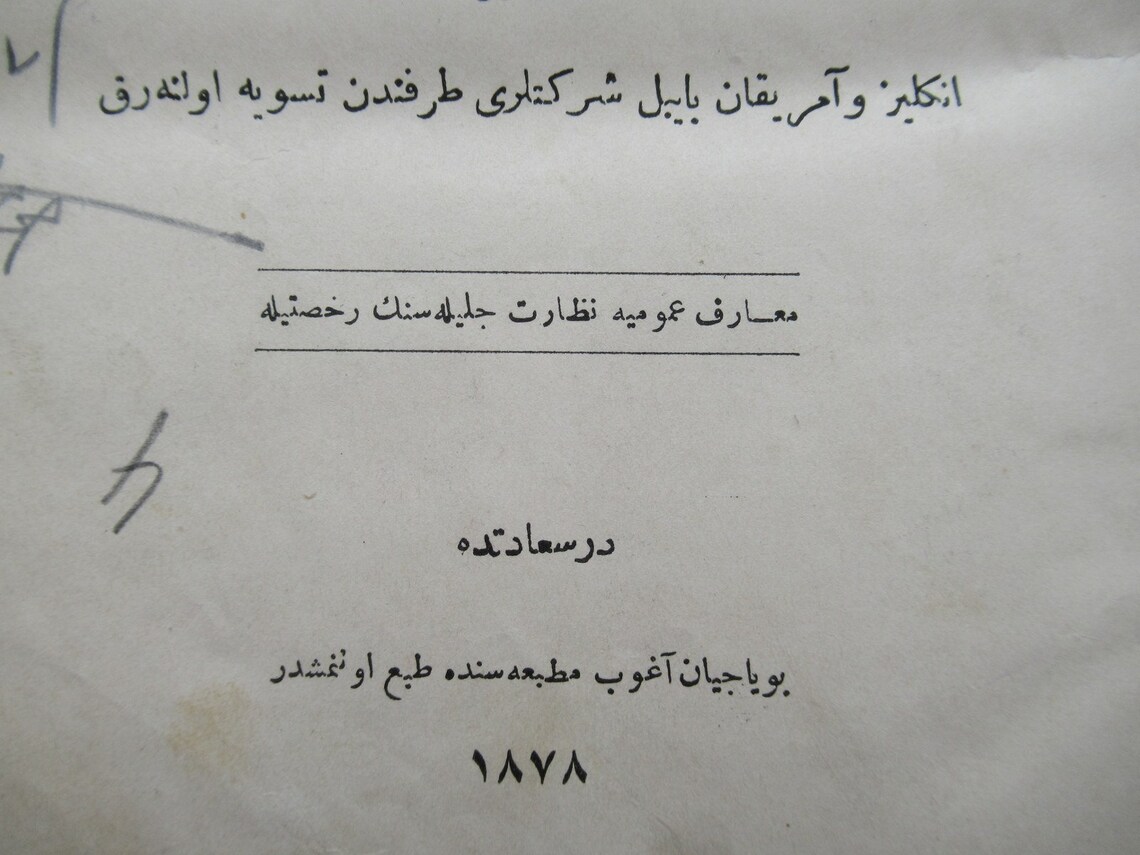 انكليز وآمريقان بايبل شركتلرى طرفندن تسويه اولنه‌رق
معارف عموميه نظارت جليله‌سنك رخصتيله
درسعادتده
بوياجيان آغوب مطبعه‌سنده طبع اولنمشدر
١٨٧٨